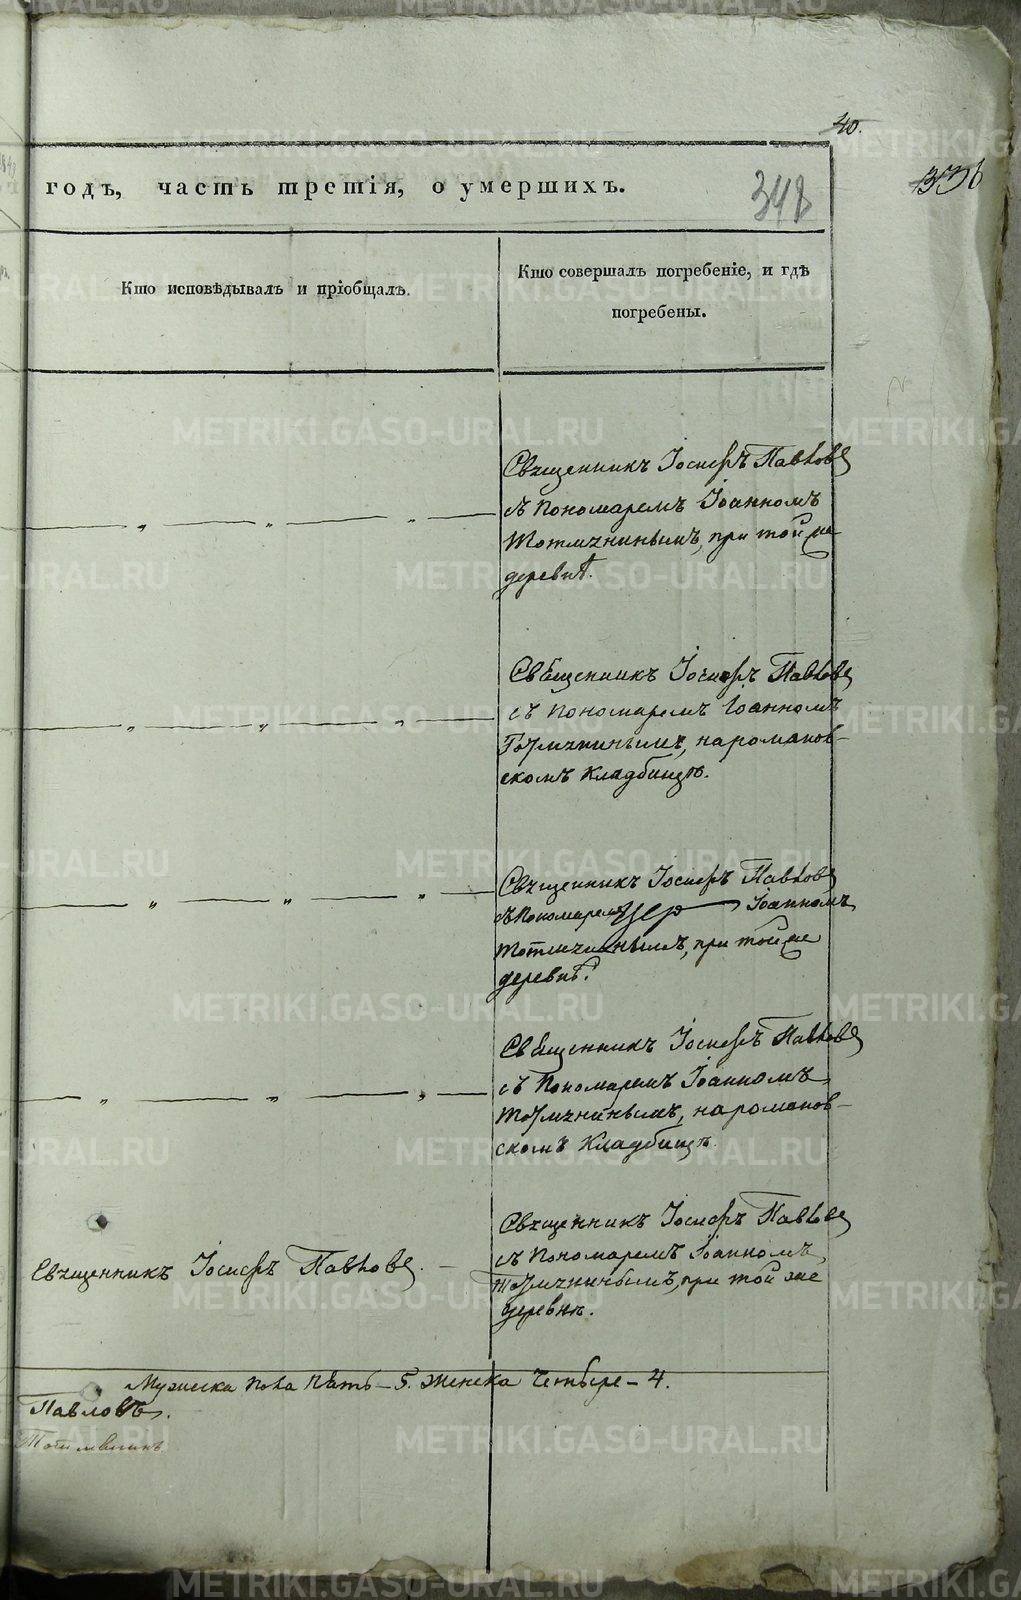 40.
336
годъ, часть третія, о умершихъ.
348
Кто исповѣдывалъ и пріобщалъ.
Кто совершалъ погребеніе, и гдѣ
погребены.
Священникъ Іосифъ Павловъ
съ Пономаремъ Іоанномъ
Тотмянинымъ, при той же
деревнѣ.
Священникъ Іосифъ Павловъ
съ Пономаремъ Іоанномъ
Тотмянинымъ, на романов-
скомъ кладбищѣ.
Священникъ Іосифъ Павловъ
съ Пономаремъ Іоанномъ
Тотмянинымъ, при той же
деревнѣ.
Священникъ Іосифъ Павловъ
съ Пономаремъ Іоанномъ
Тотмянинымъ, на романов-
скомъ кладбищѣ.
Священникъ Іосифъ Павловъ.
Священникъ Іосифъ Павловъ
съ Пономаремъ Іоанномъ
Тотмянинымъ, при той же
деревнѣ.
Мужеска пола пять – 5. Женска четыре – 4.
Павловъ.
Тотмянинъ
METRIKI.GASO-URAL.RU